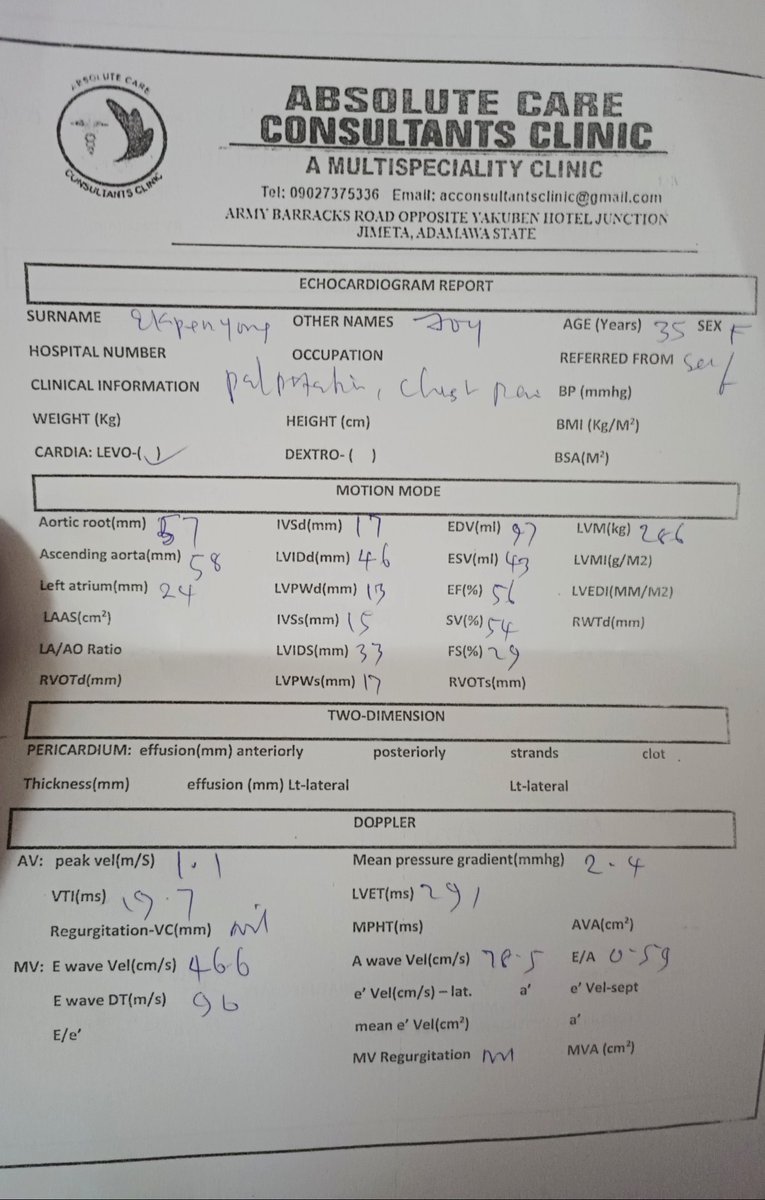 ABSOLUTE CARE
CONSULTANTS CLINIC
ABSOLUTE CARE
CONSULTANTS CLINIC
A MULTISPECIALITY CLINIC
Tel: 09027375336 Email: acconsultantsclinic@gmail.com
ARMY BARRACKS ROAD OPPOSITE YAKUBEN HOTEL JUNCTION
JIMETA, ADAMAWA STATE
ECHOCARDIOGRAM REPORT
SURNAME Ekpenyong OTHER NAMES Joy AGE (Years) 35 SEX F
HOSPITAL NUMBER OCCUPATION REFERRED FROM Self
CLINICAL INFORMATION palpitatin, chest pain BP (mmhg)
WEIGHT (Kg) HEIGHT (cm) BMI (Kg/M²)
CARDIA: LEVO-(✓) DEXTRO- ( ) BSA(M²)
MOTION MODE
Aortic root(mm) 57 IVSd(mm) 17 EDV(ml) 97 LVM(kg) 286
Ascending aorta(mm) 58 LVIDd(mm) 46 ESV(ml) 43 LVMI(g/M2)
Left atrium(mm) 24 LVPWd(mm) 13 EF(%) 56 LVEDI(MM/M2)
LAAS(cm²) IVSs(mm) 15 SV(%) 54 RWTd(mm)
LA/AO Ratio LVIDS(mm) 33 FS(%) 29
RVOTd(mm) LVPWs(mm) 17 RVOTs(mm)
TWO-DIMENSION
PERICARDIUM: effusion(mm) anteriorly posteriorly strands clot
Thickness(mm) effusion (mm) Lt-lateral Lt-lateral
DOPPLER
AV: peak vel(m/S) 1.1 Mean pressure gradient(mmhg) 2.4
VTI(ms) 19.7 LVET(ms) 291
Regurgitation-VC(mm) nil MPHT(ms) AVA(cm²)
MV: E wave Vel(cm/s) 466 A wave Vel(cm/s) 78.5 E/A 0.59
E wave DT(m/s) 96 e' Vel(cm/s) – lat. a' e' Vel-sept
E/e' mean e' Vel(cm²) a'
MV Regurgitation nil MVA (cm²)